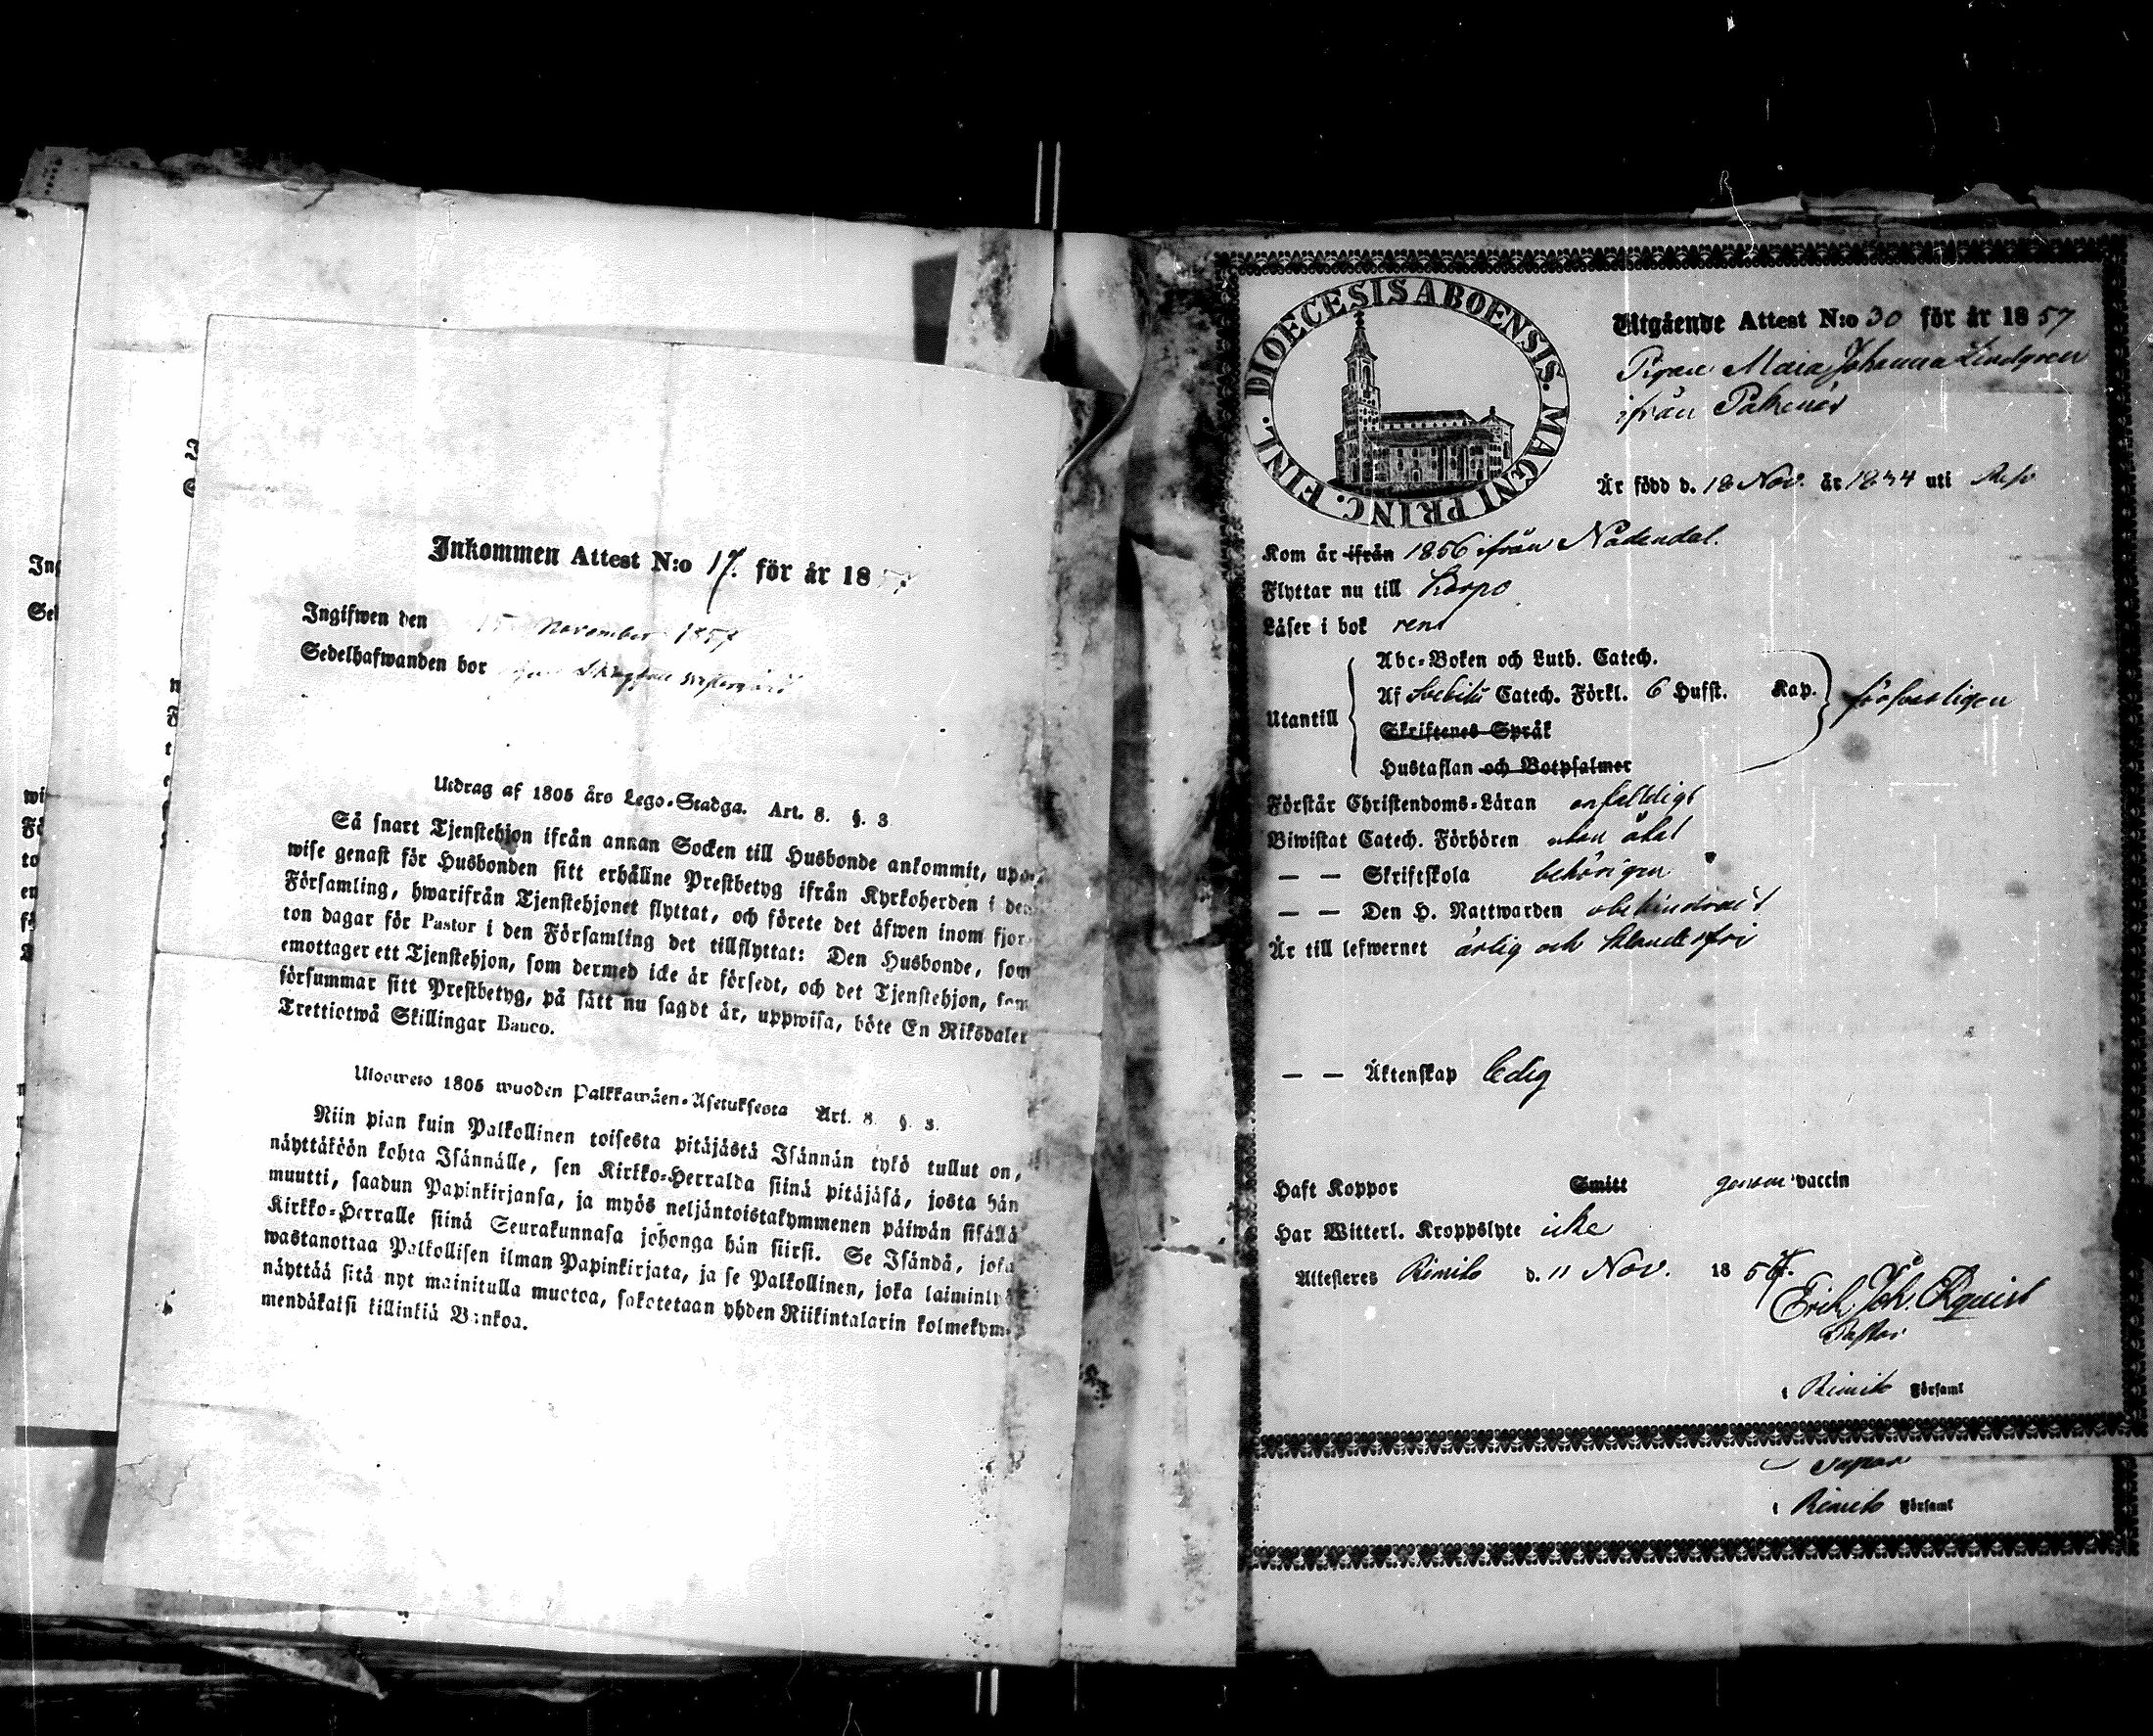 Inkommen Attest N:o 17. för år 1857.
Ingifwen den 15 November 1857
Sedelhafwanden bor
Utdrag af 1805 års Lego-Stadga. Art. 8. §. 3
Så snart Tjenstehjon ifrån annan Socken till Husbonde ankommit, upp-
wise genast för Husbonden sitt erhållne Prestbetyg ifrån Kyrkoherden i den
Församling, hwarifrån Tjenstehjonet flyttat, och förete det äfwen inom fjor-
ton dagar för Pastor i den Församling det tillflyttat: Den Husbonde, som
emottager ett Tjenstehjon, som dermed icke är försedt, och det Tjenstehjon, som
försummar sitt Prestbetyg, på sätt nu sagdt är, uppwisa, böte En Riksdaler
Trettiotwå Skillingar Banco.
Ulosweto 1805 wuoden Palkkawäen-Asetuksesta Art. 8. §. 3.
Niin pian kuin Palkollinen toisesta pitäjästä Isännän tykö tullut on,
näyttäköön kohta Isännälle, sen Kirkko-Herralda siinä pitäjäsä, josta hän
muutti, saadun Papinkirjansa, ja myös neljäntoistakymmenen päiwän sisällä
Kirkko-Herralle siinä Seurakunnasa johonga hän siirsi. Se Isändä, joka
wastanottaa Palkollisen ilman Papinkirjata, ja se Palkollinen, joka laiminlyö
näyttää sitä nyt mainitulla muotoa, sakotetaan yhden Riikintalarin kolmekym-
mendäkaksi killinkiä Bankoa.
DIOECESIS ABOENSIS. MAGNI PRINC. FINL.
Utgående Attest N:o 30 för år 1857
Pigan Maja Johanna Lindgren
ifrån
Är född d. 18 Nov. år 1834 uti Reso
Kom år ifrån 1856 ifrån Nådendal.
Flyttar nu till Korpo
Läser i bok rent
Utantill
Abc-Boken och Luth. Catech.
Af Svebilii Catech. Förkl. 6 Hufst. Kap. försvarligen
Skriftenes Språk
Hustaflan och Botpsalmer
Förstår Christendoms-Läran enfaldigt
Biwistat Catech. Förhören utan åtal
— — Skriftskola behörigen
— — Den H. Nattwarden obehindradt
Är till lefwernet ärlig och klanderfri
— — Äktenskap ledig
Haft Koppor Smitt genom vaccin
Har Witterl. Kroppslyte icke
Attesteres Rimito d. 11 Nov. 1857.
Erich Joh. Öquist
Pastor
i Rimito Församl
i Rimito Församl